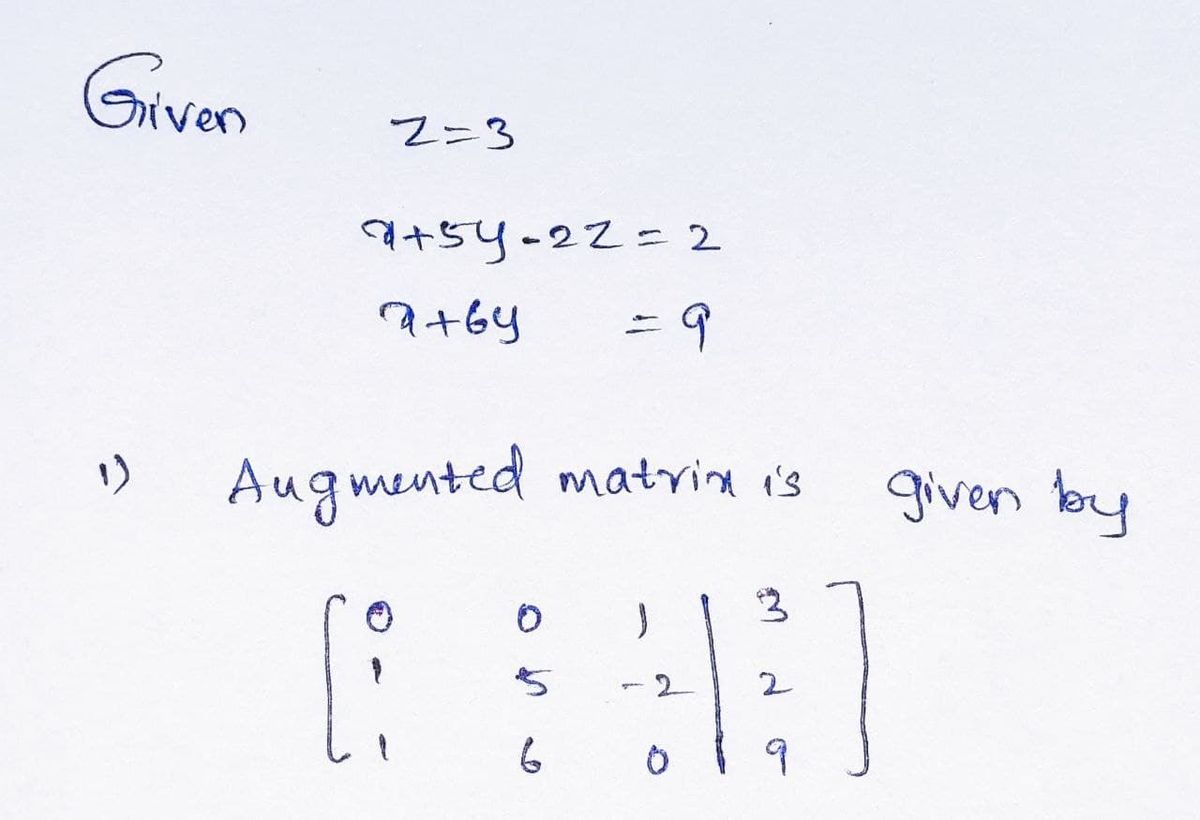 Given
z=3
x+5y-2z=2
x+6y =9
1) Augmented matrix is given by
[0 0 1 | 3
1 5 -2 | 2
1 6 0 | 9]